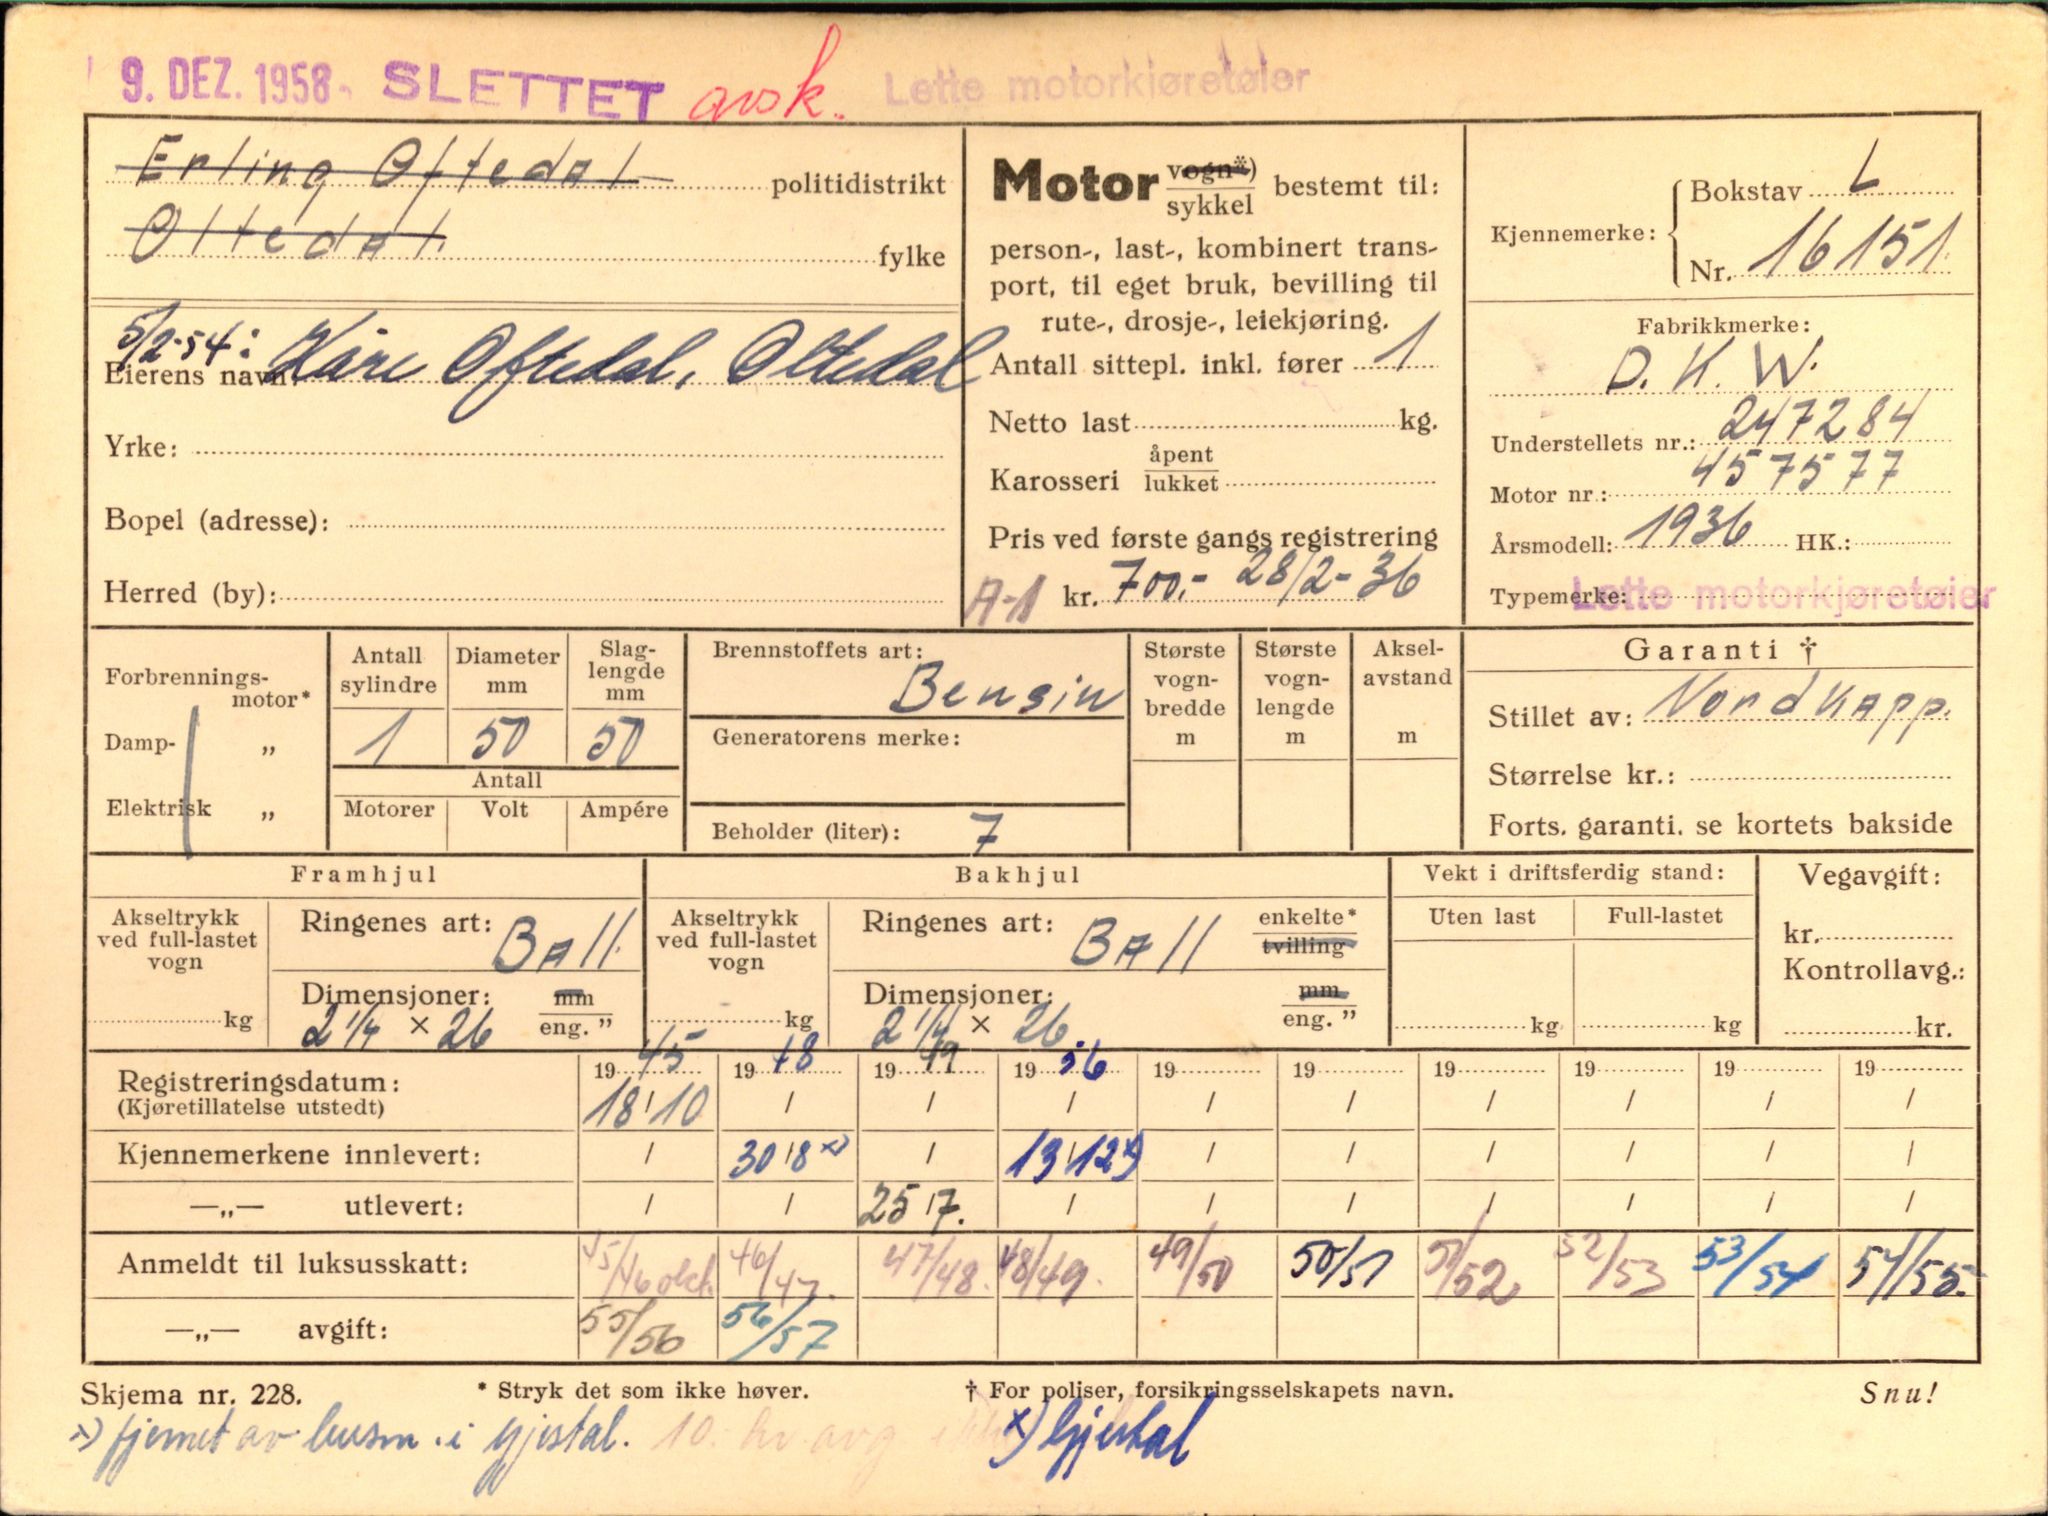 9. DEZ. 1958 SLETTET avsk. Lette motorkjøretøier
Erling Oftedal politidistrikt
Oltedal. fylke
5/2-54: Kåre Oftedal, Oltedal
Eierens navn:
Yrke:
Bopel (adresse):
Herred (by):
Motor vogn*) sykkel bestemt til:
person-, last-, kombinert trans-
port, til eget bruk, bevilling til
rute-, drosje-, leiekjøring.
Antall sittepl. inkl. fører 1
Netto last kg.
Karosseri åpent lukket
Pris ved første gangs registrering
A-1 kr. 700.- 28/2-36
Kjennemerke: Bokstav L
Nr. 16151.
Fabrikkmerke:
D.K.W.
Understellets nr.: 247284
Motor nr.: 457577
Årsmodell: 1936 HK.:
Typemerke: Lette motorkjøretøier
Forbrennings-
motor*
Damp- „
Elektrisk „
Antall sylindre Diameter mm Slag-lengde mm
1 50 50
Antall
Motorer Volt Ampére
Brennstoffets art:
Bensin
Generatorens merke:
Beholder (liter): 7
Største vogn-bredde m
Største vogn-lengde m
Aksel-avstand m
Garanti †
Stillet av: Nordkapp.
Størrelse kr.:
Forts. garanti. se kortets bakside
Framhjul
Akseltrykk
ved full-lastet
vogn
kg
Ringenes art: Ball.
Dimensjoner: mm eng. ”
2 1/4 × 26
Bakhjul
Akseltrykk
ved full-lastet
vogn
kg
Ringenes art: Ball enkelte* tvilling
Dimensjoner: mm eng. ”
2 1/4 × 26
Vekt i driftsferdig stand:
Uten last Full-lastet
kg kg
Vegavgift:
kr.
Kontrollavg.:
kr.
Registreringsdatum: 1945 1948 1949 1956 19 19 19 19 19 19
(Kjøretillatelse utstedt) 18/10 / / / / / / / / /
Kjennemerkene innlevert: / 30/8 x) / 13/12 x) / / / / / /
—„— utlevert: / / 25/7. / / / / / / /
Anmeldt til luksusskatt: 45/46 okt. 46/47. 47/48. 48/49. 49/50 50/51 51/52 52/53 53/54 54/55.
—„— avgift: 55/56 56/57
Skjema nr. 228. * Stryk det som ikke høver. † For poliser, forsikringsselskapets navn. Snu!
x) fjernet av lensm. i Gjestal. 10. kr avg x) Gjestal